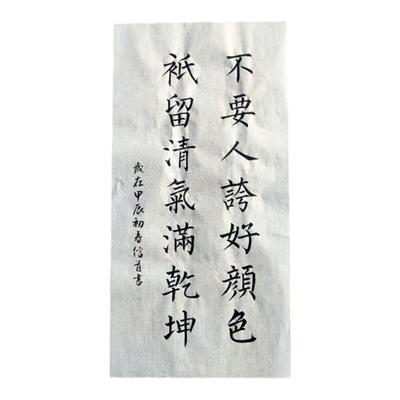 不要人誇好顔色
祇留清氣滿乾坤
歲在甲辰初春信首書